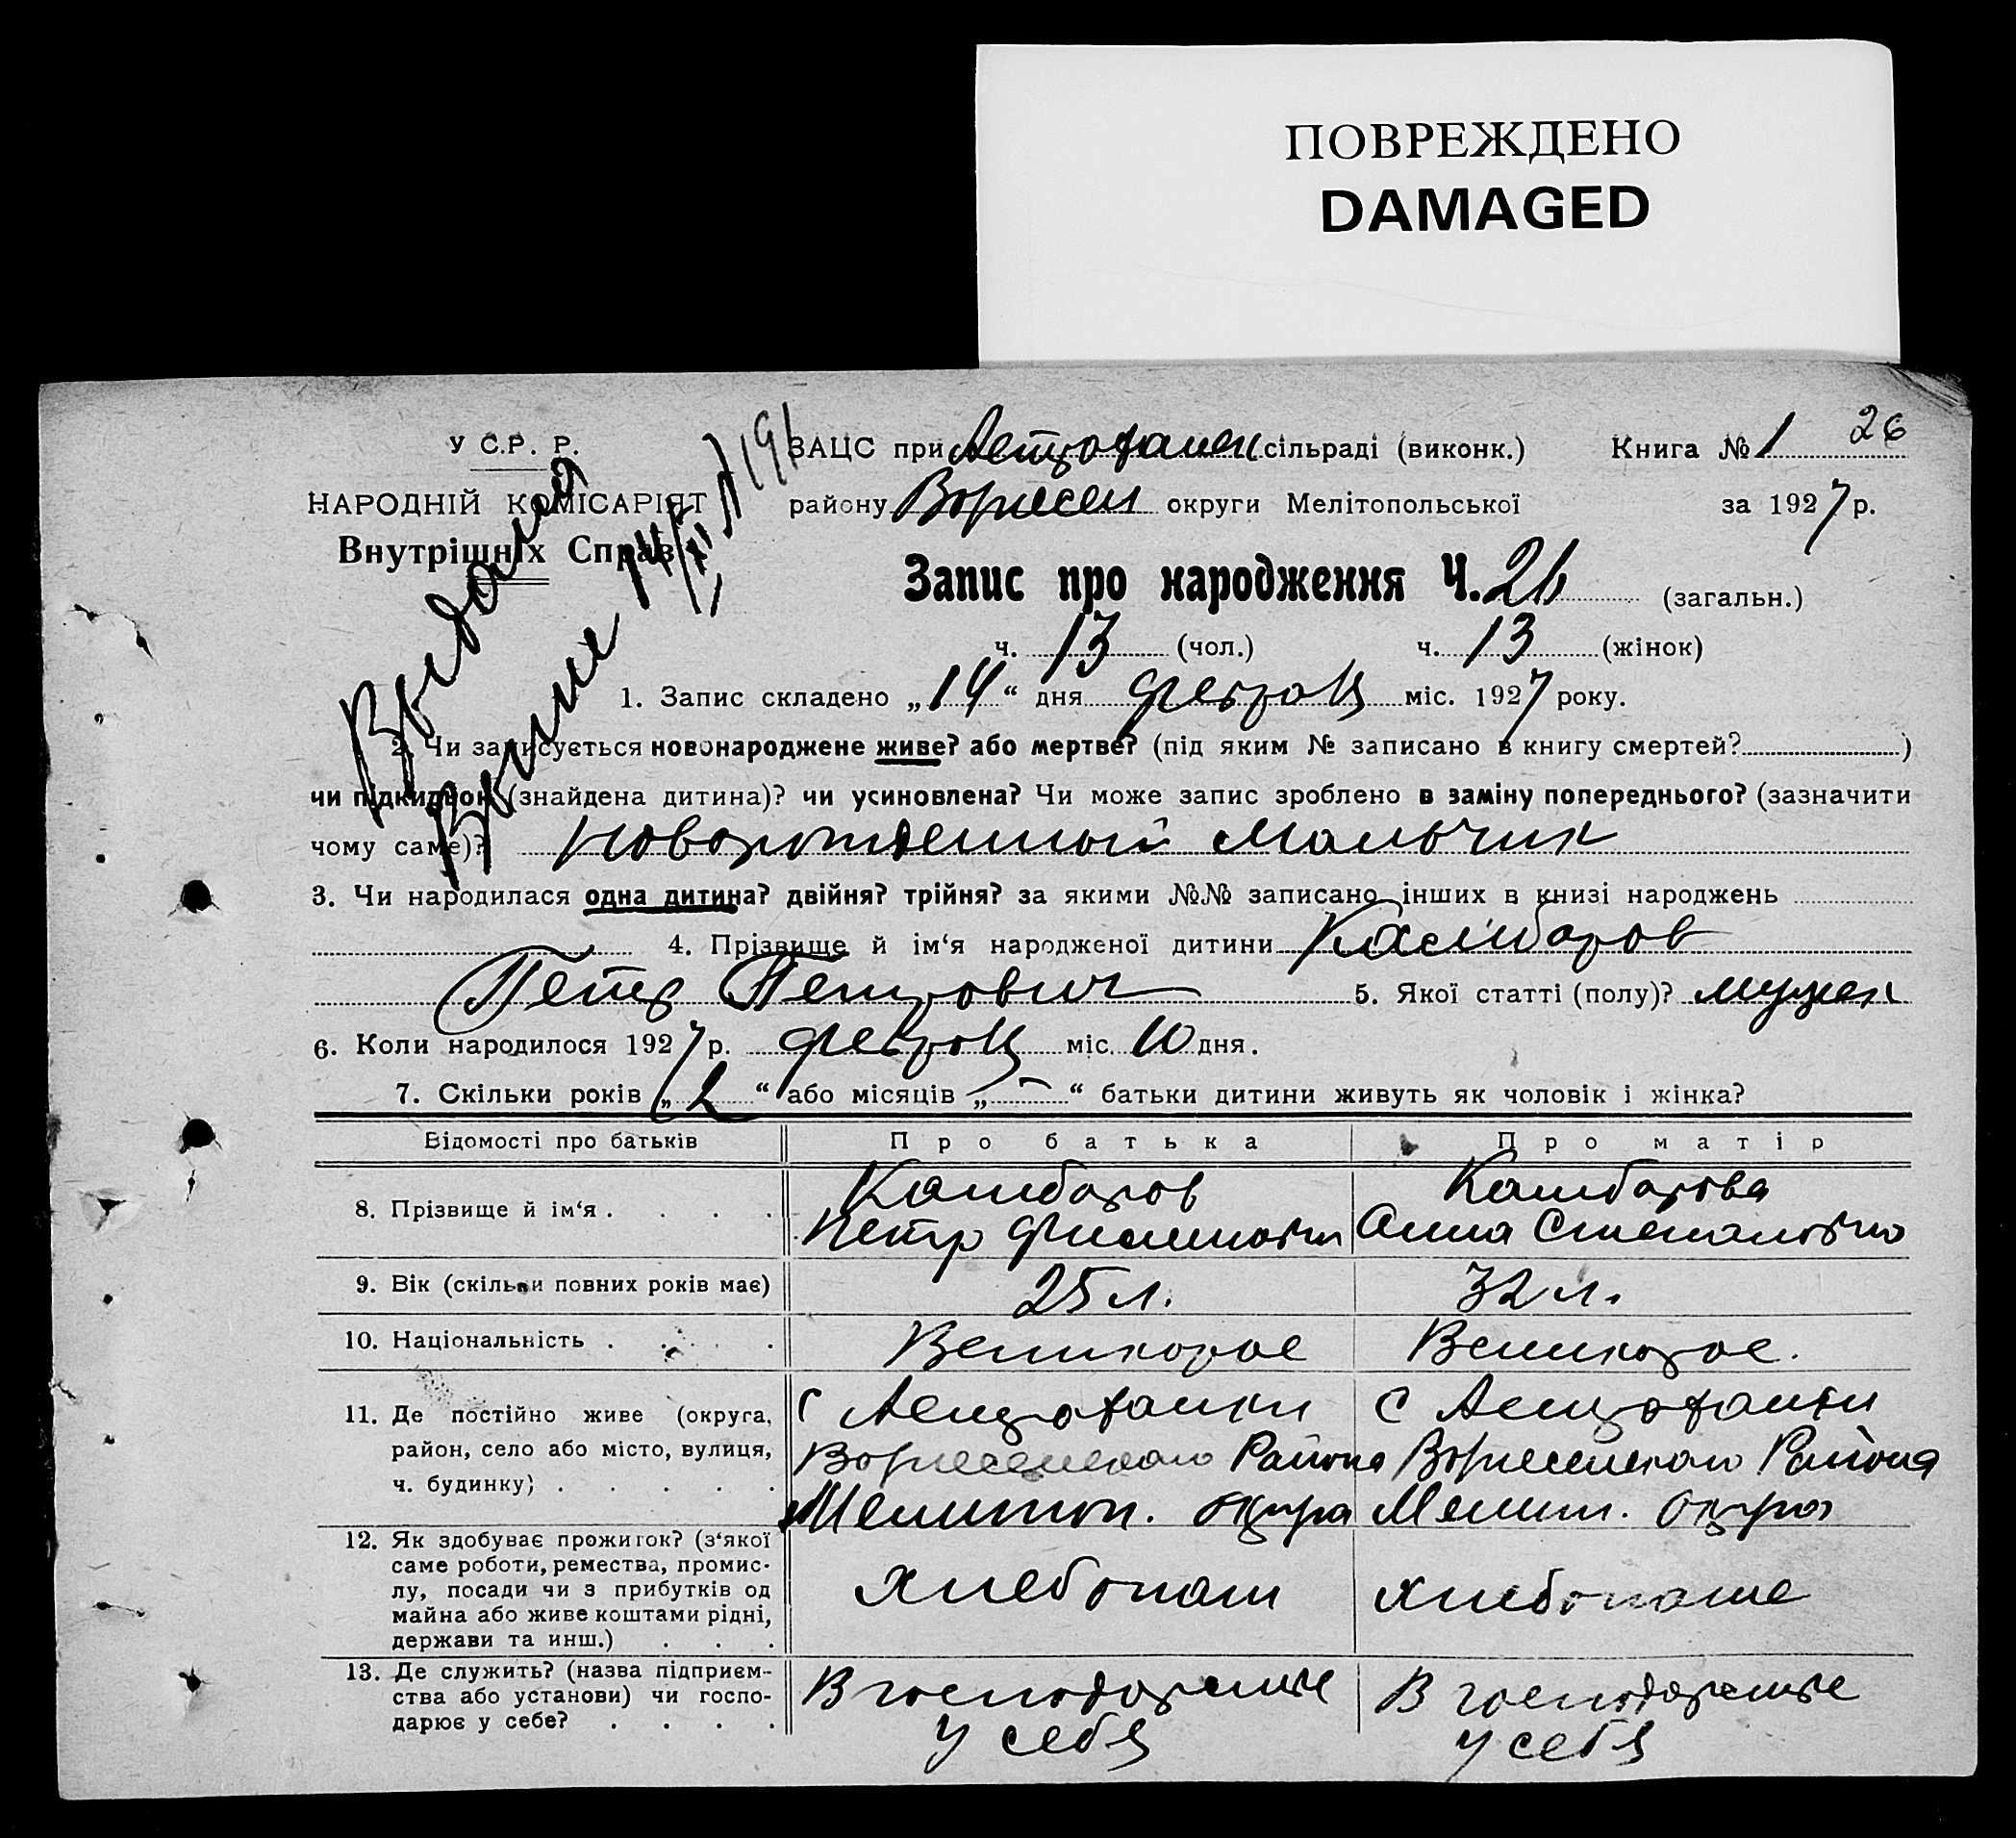 ПОВРЕЖДЕНО
DAMAGED
У С.Р. Р.
НАРОДНІЙ КОМІСАРІЯТ
Внутрішніх Справ
ЗАЦС при сільраді (виконк.) Книга № 1 26
району округи Мелітопольської за 1927 р.
Запис про народження Ч. 26 (загальн.)
ч. 13 (чол.) ч. 13 (жінок)
1. Запис складено „14“ дня февраля міс. 1927 року.
2. Чи записується новонароджене живе? або мертве? (під яким № записано в книгу смертей? )
чи підкидьок (знайдена дитина)? чи усиновлена? Чи може запис зроблено в заміну попереднього? (зазначити
чому саме)? Новорожденный Мальчик
3. Чи народилася одна дитина? двійня? трійня? за якими №№ записано інших в книзі народжень
4. Прізвище й ім‘я народженої дитини
Петр Петрович 5. Якої статті (полу)? мужск
6. Коли народилося 1927 р. февраля міс. 10 дня.
7. Скільки років „2“ або місяців „—“ батьки дитини живуть як чоловік і жінка?
Відомості про батьків Про батька Про матір
8. Прізвище й ім‘я . . . . Кашбаров Кашбарова
Петр Анна Степановна
9. Вік (скільки повних років має) 25 л. 32 л.
10. Національність . . . . Великорос Великорос.
11. Де постійно живе (округа, с с
район, село або місто, вулиця, Района Района
ч. будинку) . . . . . Мелитоп. округа Мелит. округа
12. Як здобуває прожиток? (з‘якої
саме роботи, ремества, промис-
лу, посади чи з прибутків од Хлебопаш хлебопаше
майна або живе коштами рідні,
держави та инш.) . . .
13. Де служить? (назва підприєм-
ства або установи) чи госпо- В В
дарює у себе? . . . . у себя у себя